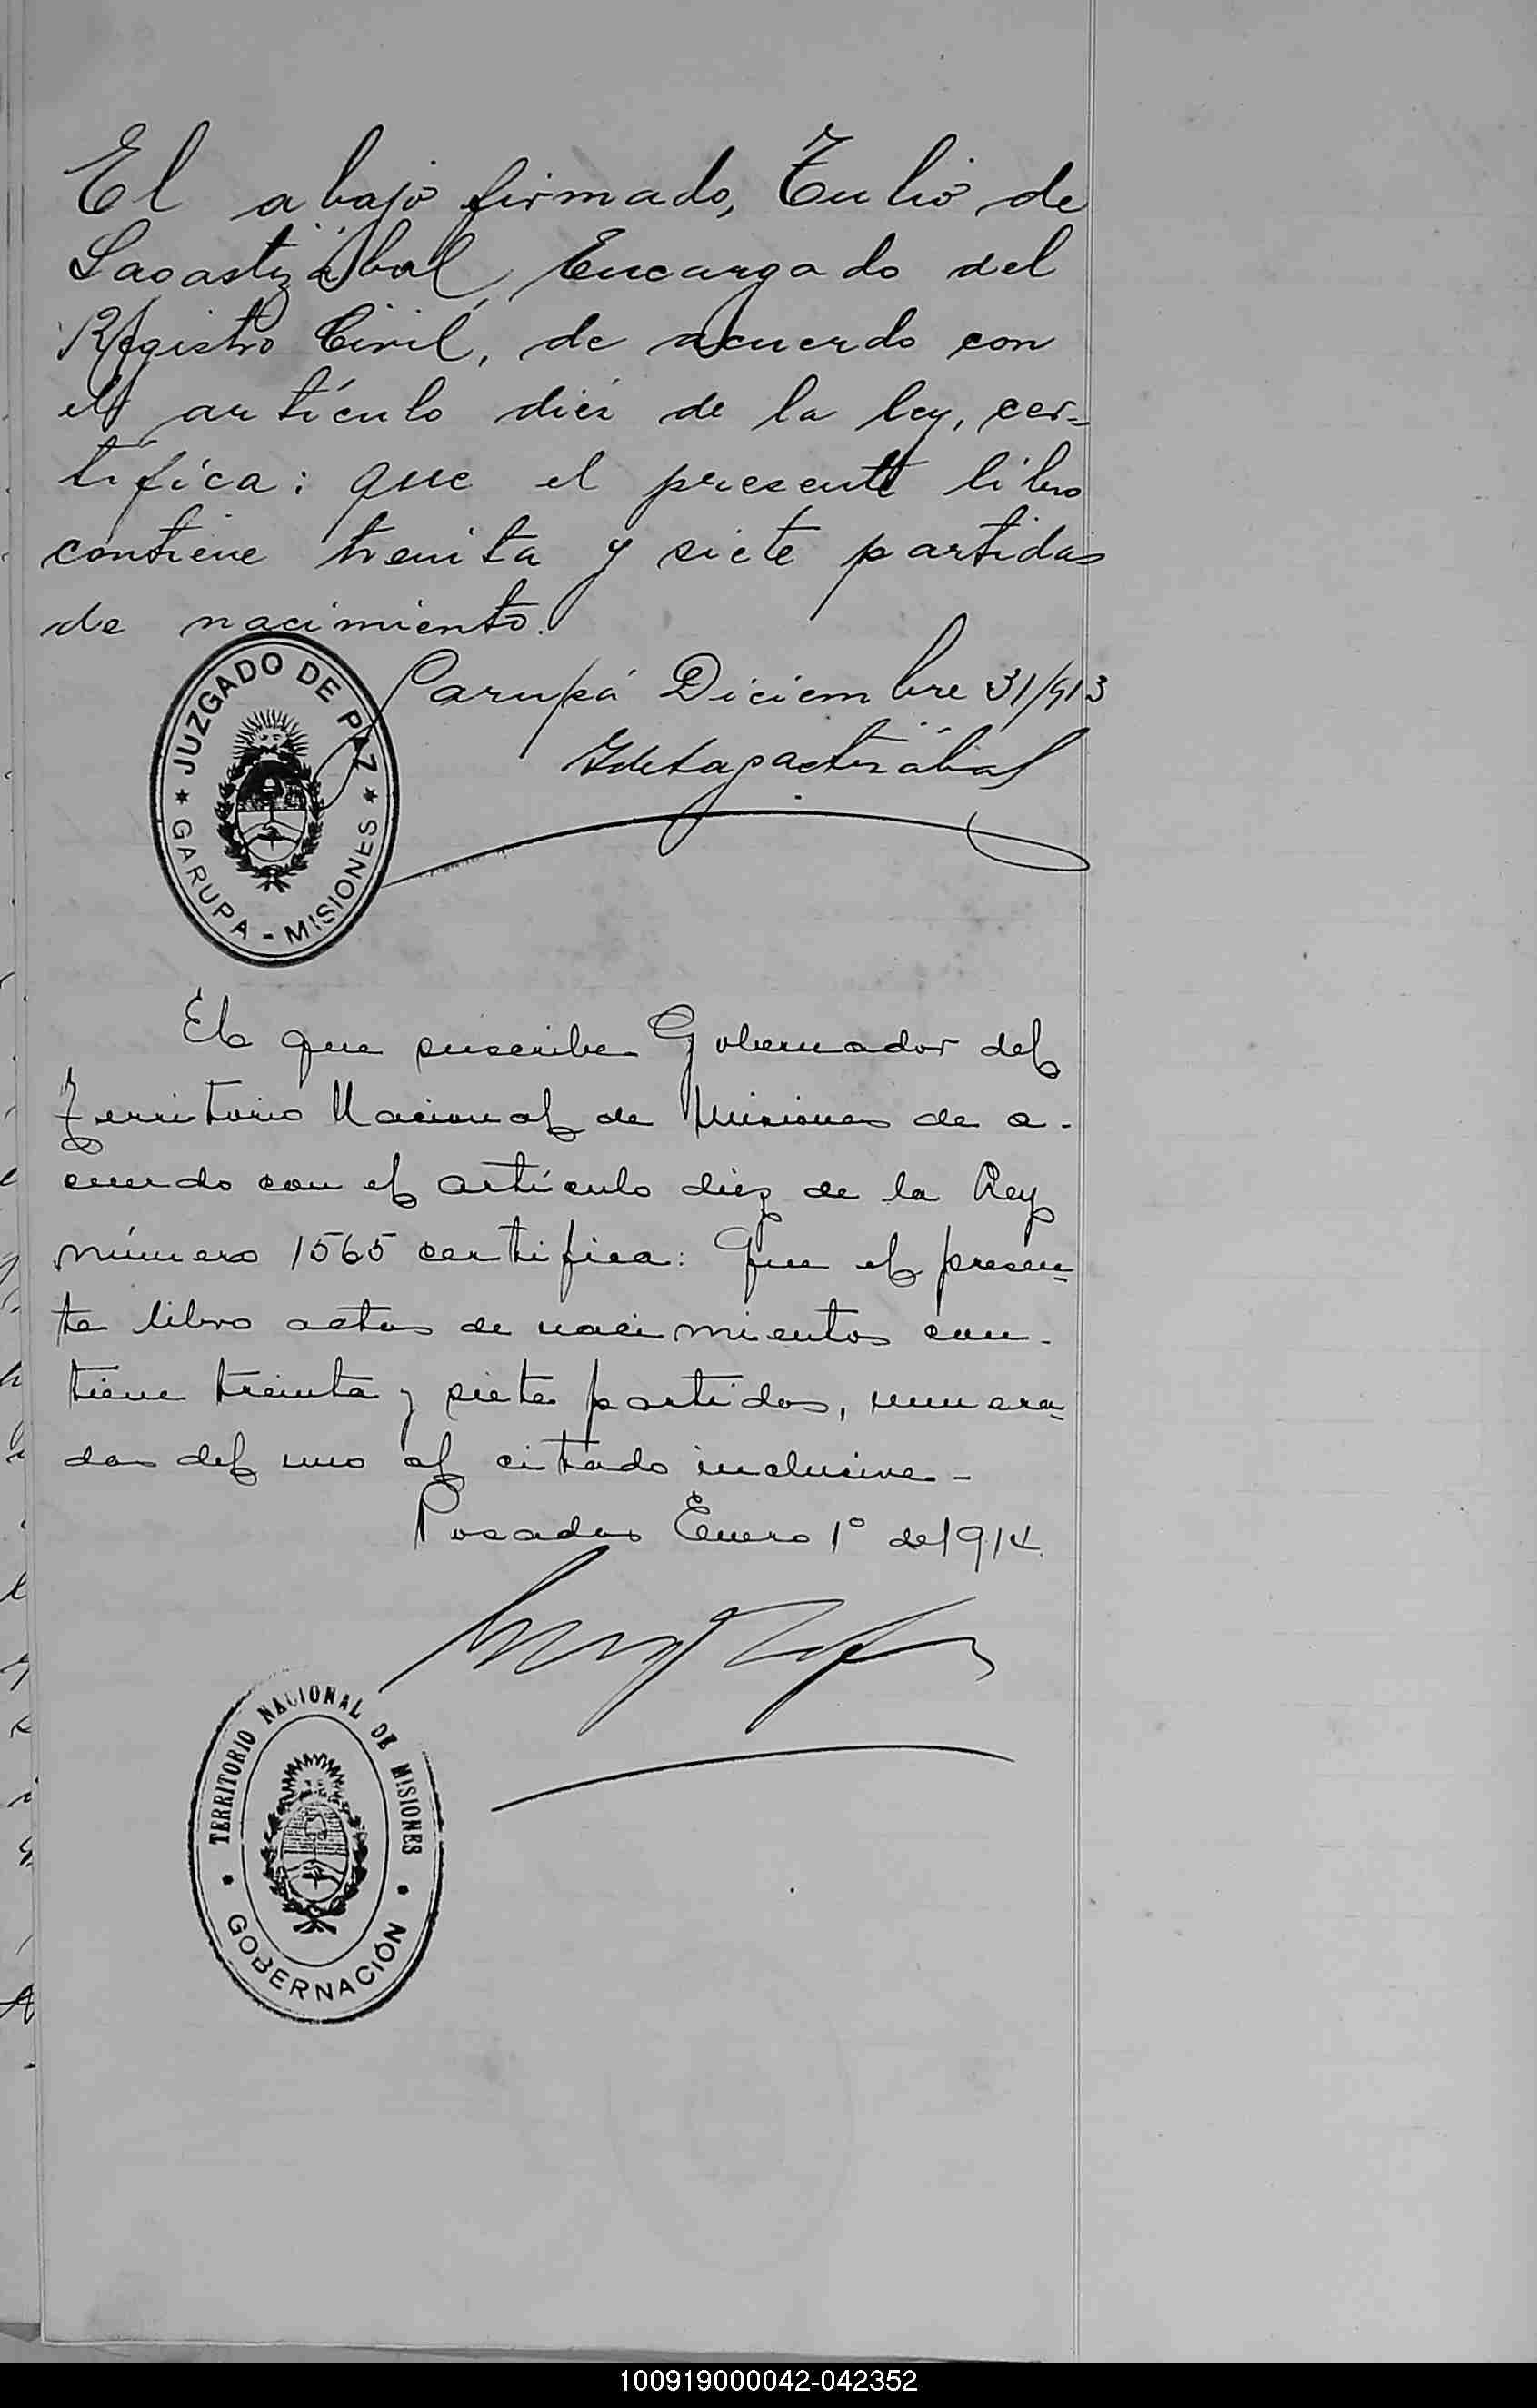 El abajo firmado, Tulio de
Lagastizábal, Encargado del
Registro Civil, de acuerdo con
el artículo diez de la ley, cer-
tifica: que el presente libro
contiene treinta y siete partidas
de nacimiento.
Garupá Diciembre 31/913
TdeLagastizábal
JUZGADO DE PAZ
GARUPA - MISIONES
El que suscribe Gobernador del
Territorio Nacional de Misiones de a-
cuerdo con el artículo diez de la Ley
número 1565 certifica: Que el presen-
te libro actas de nacimientos con-
tiene treinta y siete partidas, numera-
das del uno al citado inclusive -
Posadas Enero 1º de 1914
TERRITORIO NACIONAL DE MISIONES
GOBERNACIÓN
100919000042-042352